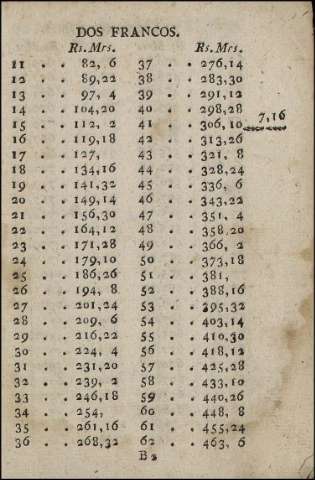 DOS FRANCOS.
Rs. Mrs. Rs. Mrs.
11 . . 82, 6 37 . . 276,14
12 . . 89,22 38 . . 283,30
13 . . 97, 4 39 . . 291,12
14 . . 104,20 40 . . 298,28
7,16
15 . . 112, 2 41 . . 306,10
16 . . 119,18 42 . . 313,26
17 . . 127, 43 . . 321, 8
18 . . 134,16 44 . . 328,24
19 . . 141,32 45 . . 336, 6
20 . . 149,14 46 . . 343,22
21 . . 156,30 47 . . 351, 4
22 . . 164,12 48 . . 358,20
23 . . 171,28 49 . . 366, 2
24 . . 179,10 50 . . 373,18
25 . . 186,26 51 . . 381,
26 . . 194, 8 52 . . 388,16
27 . . 201,24 53 . . 395,32
28 . . 209, 6 54 . . 403,14
29 . . 216,22 55 . . 410,30
30 . . 224, 4 56 . . 418,12
31 . . 231,20 57 . . 425,28
32 . . 239, 2 58 . . 433,10
33 . . 246,18 59 . . 440,26
34 . . 254, 60 . . 448, 8
35 . . 261,16 61 . . 455,24
36 . . 268,32 62 . . 463, 6
B 2